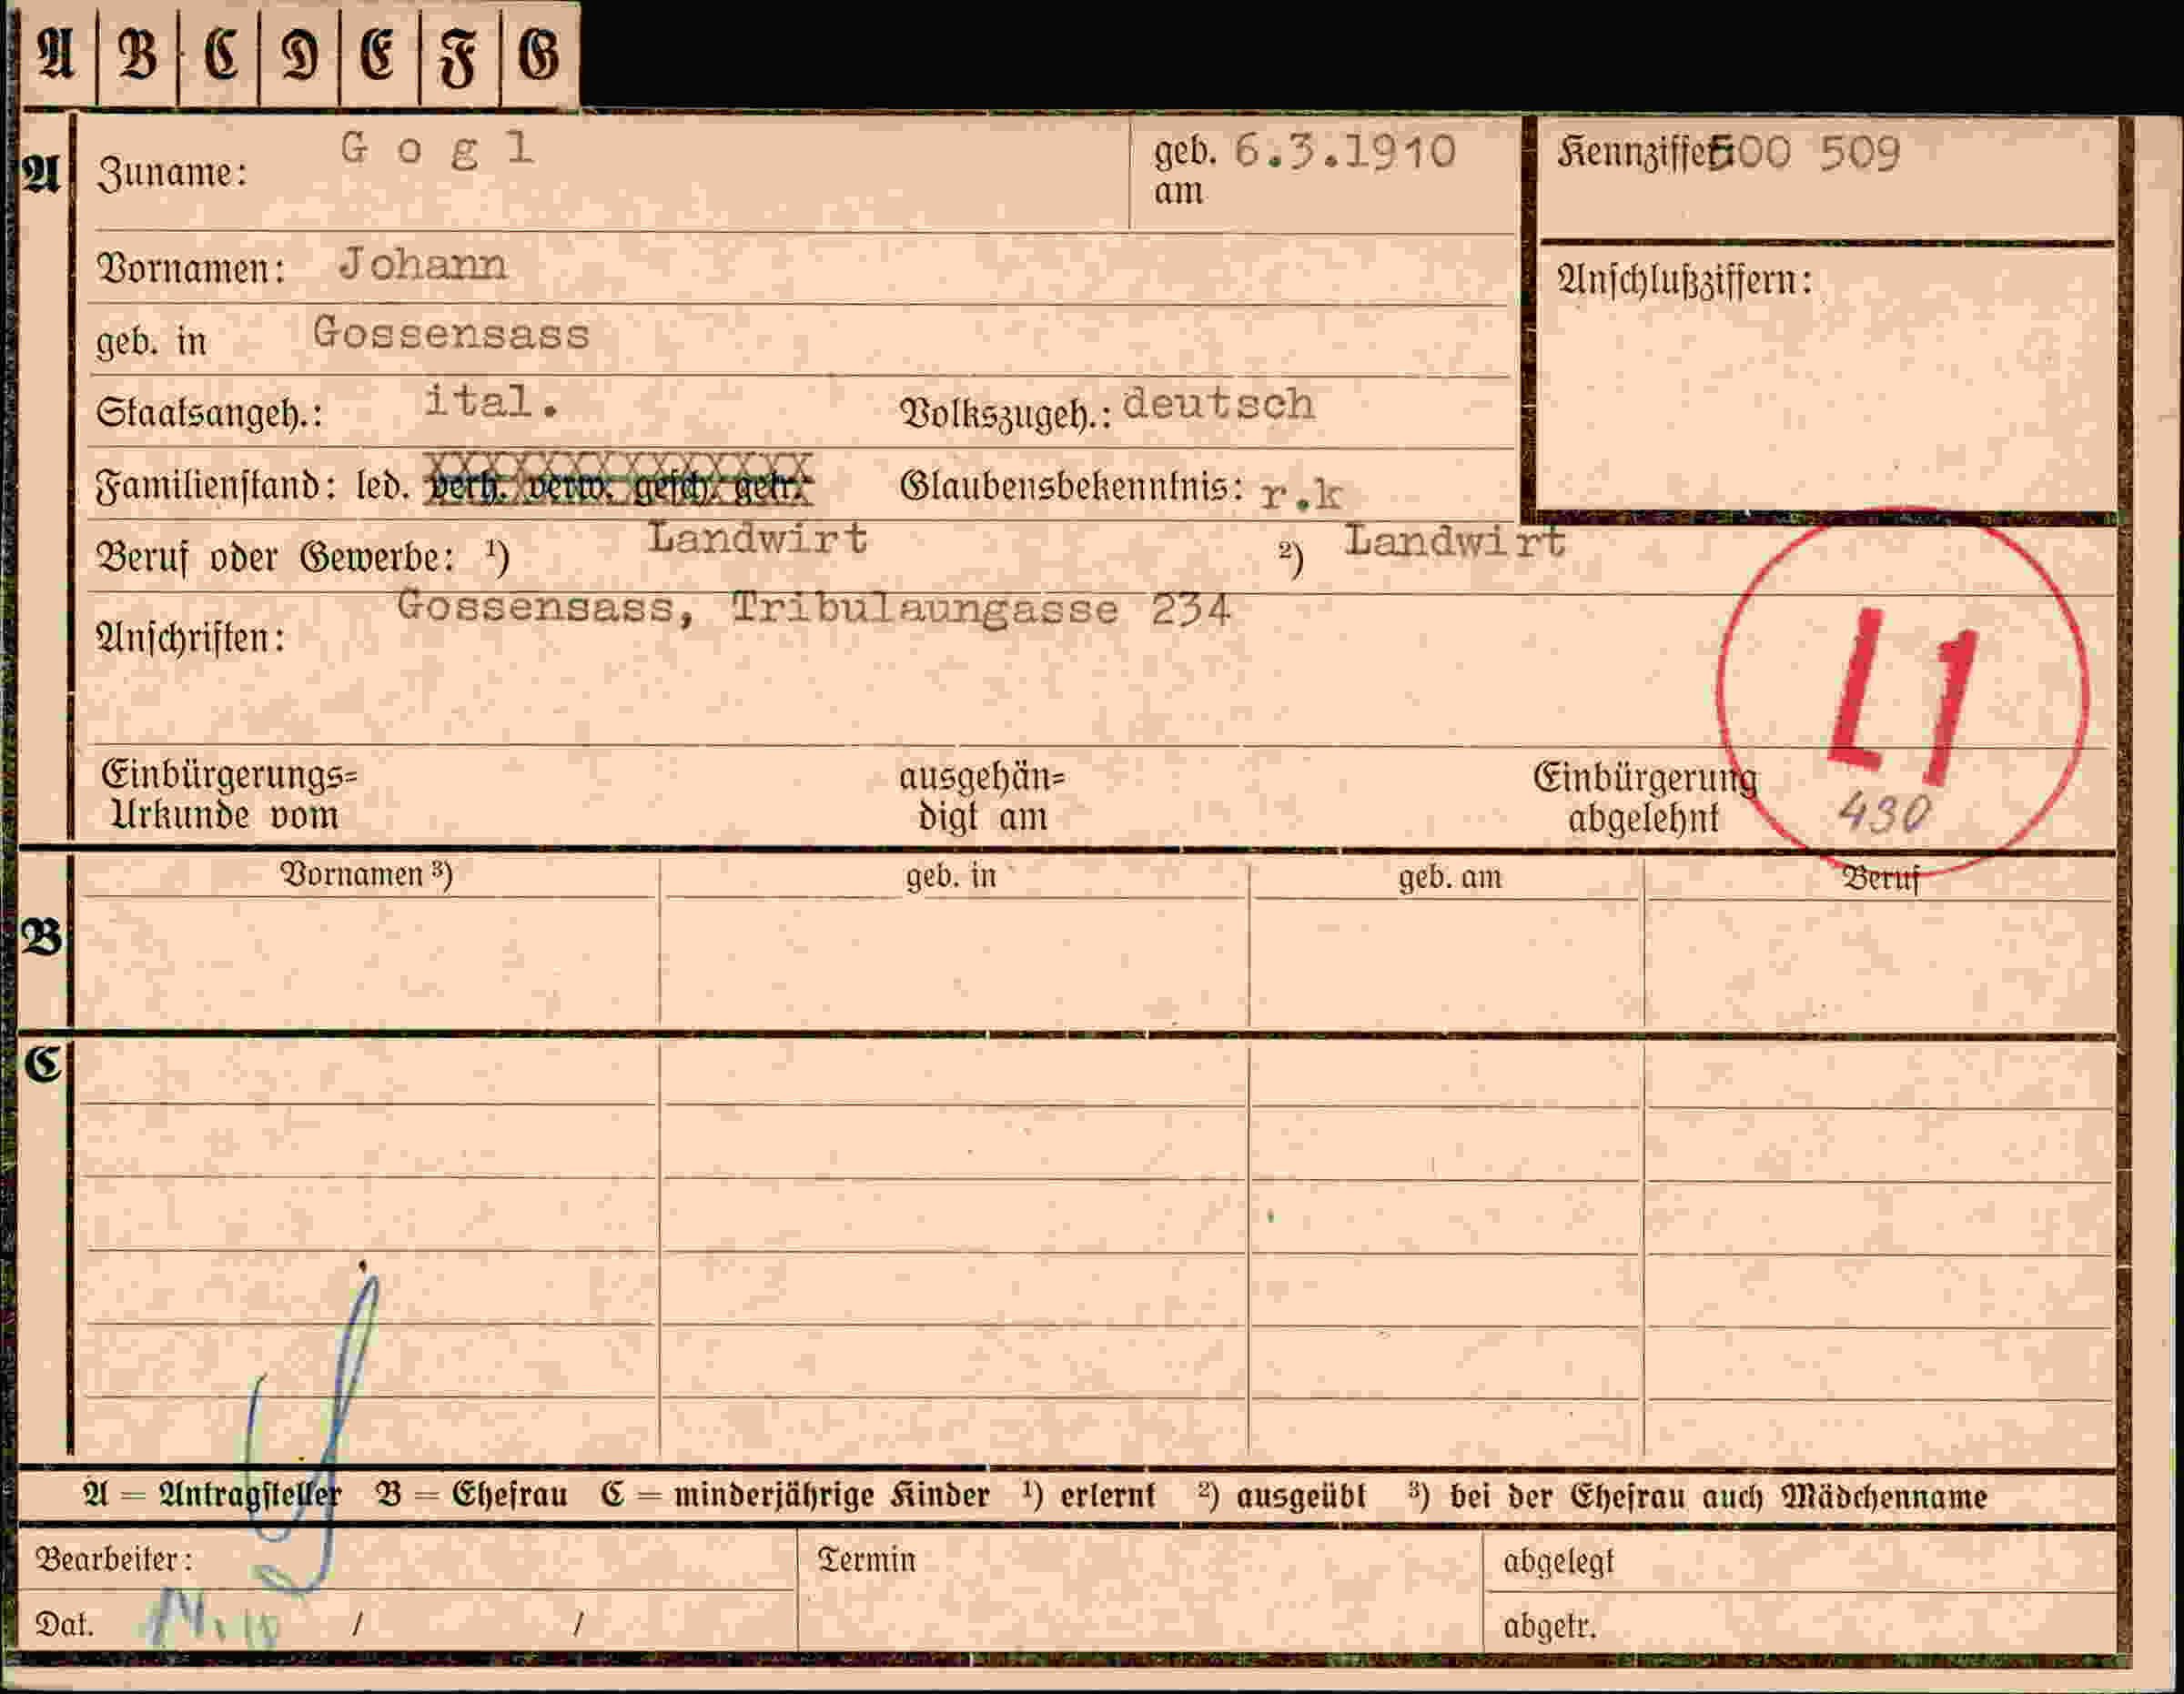 A B C D E F G
A Zuname: Gogl geb. am 6.3.1910 Kennziffer 500 509
Vornamen: Johann Anschlußziffern:
geb. in Gossensass
Staatsangeh.: ital. Volkszugeh.: deutsch
Familienstand: led. verh. verw. gesch. getr. Glaubensbekenntnis: r.k
Beruf oder Gewerbe: ¹) Landwirt ²) Landwirt
Anschriften: Gossensass, Tribulaungasse 234
L1
Einbürgerungs= ausgehän= Einbürgerung
Urkunde vom digt am abgelehnt 430
Vornamen ³) geb. in geb. am Beruf
B
C
A = Antragsteller B = Ehefrau C = minderjährige Kinder ¹) erlernt ²) ausgeübt ³) bei der Ehefrau auch Mädchenname
Bearbeiter: Termin abgelegt
Dat. / / abgetr.